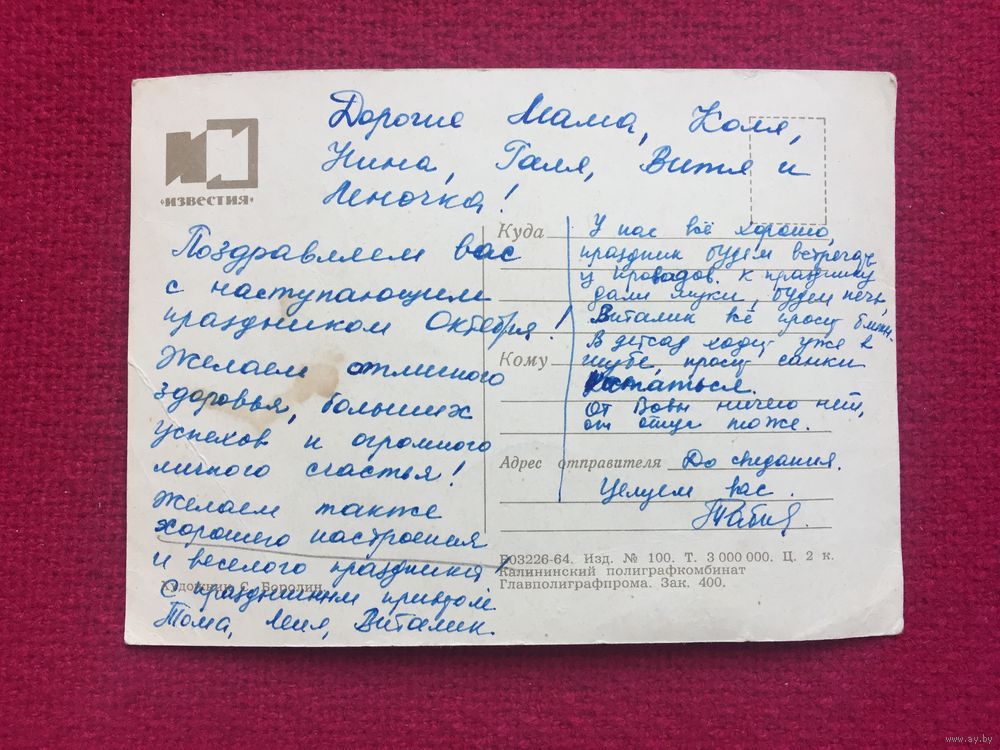 Дорогие Мама, Коля,
Нина, Галя, Витя и
Леночка!
«ИЗВЕСТИЯ»
Поздравляем вас
с наступающим
праздником Октября!
Желаем отличного
здоровья, больших
успехов и огромного
личного счастья!
Желаем также
хорошего настроения
и веселого праздника
С праздничным приветом
Тома, Виталик.
Художник С. Боролин
Куда
У нас всё хорошо,
праздник будем встречать
у К празднику
дали муки, будем печь,
Виталик всё просит
В детсад ходит уже в
шубе, просит санки
кататься.
От Вовы ничего нет,
от отца тоже.
Кому
Адрес отправителя
До свидания.
Целуем вас.
Б03226-64. Изд. № 100. Т. 3 000 000. Ц. 2 к.
Калининский полиграфкомбинат
Главполиграфпрома. Зак. 400.
www.ay.by